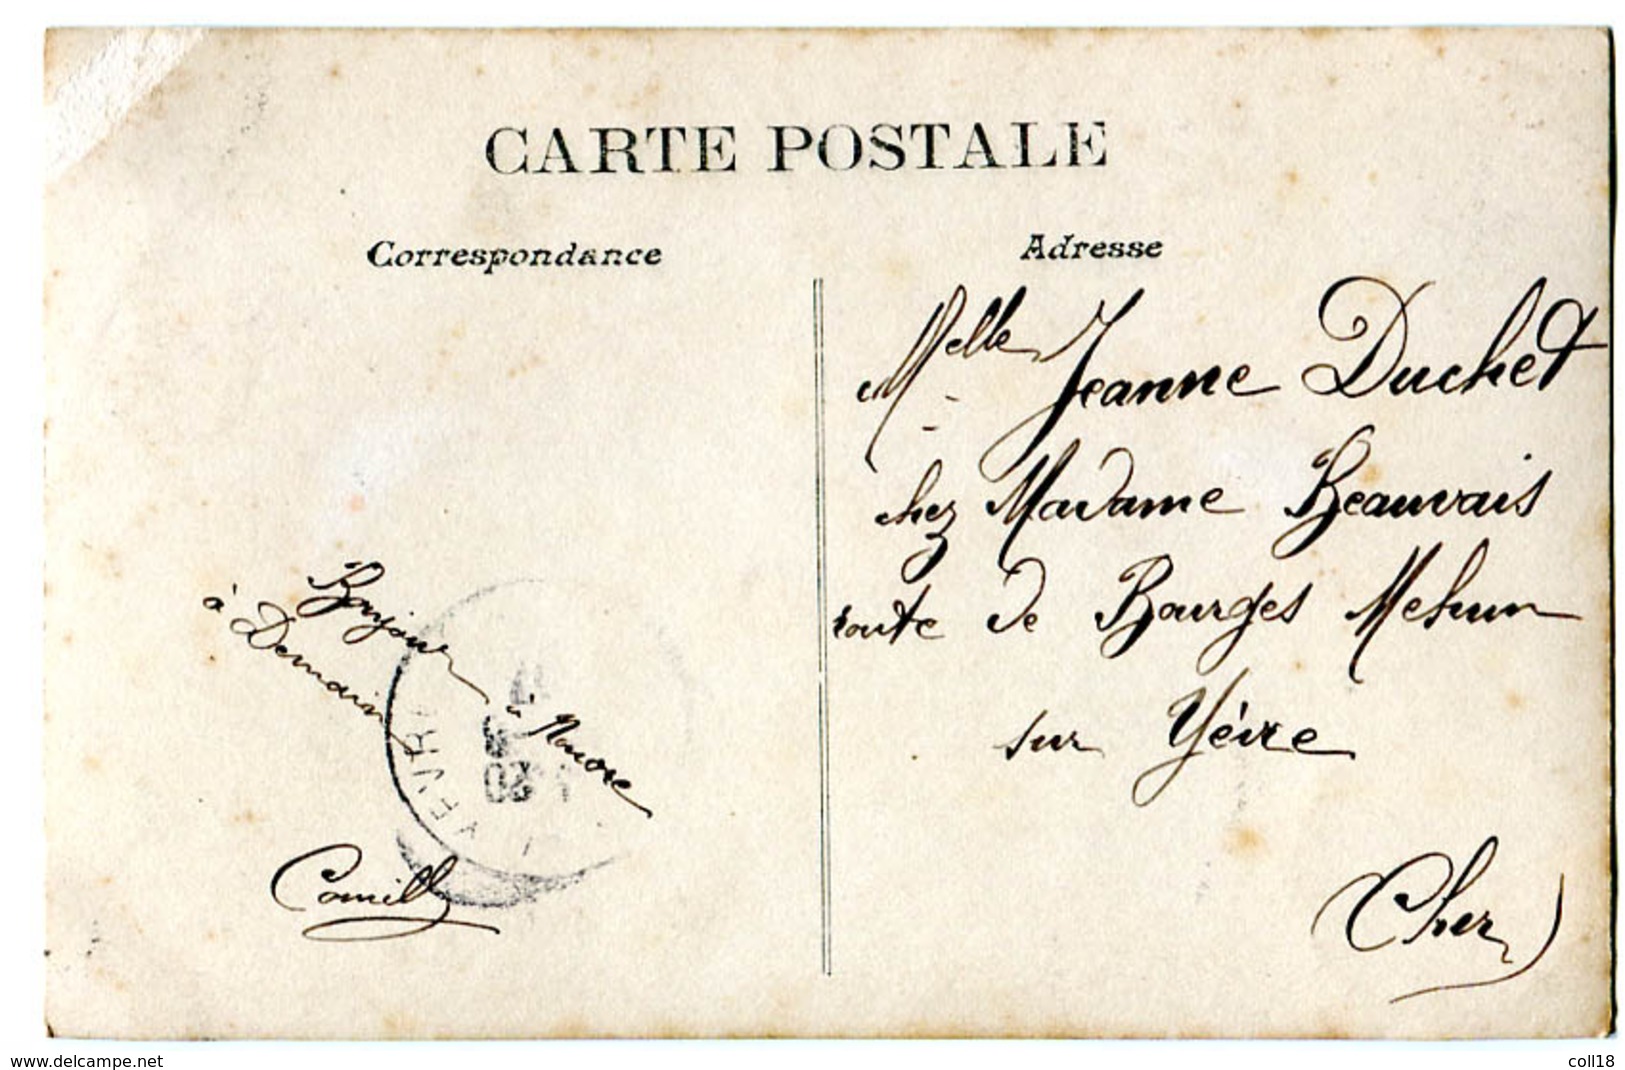 CARTE POSTALE
Correspondance
Adresse
Bonjour à
à Demain
Camille
Melle Jeanne Duchet
chez Madame Beauvais
route de Bourges Mehun
sur Yèvre
Cher
www.delcampe.net
coll18